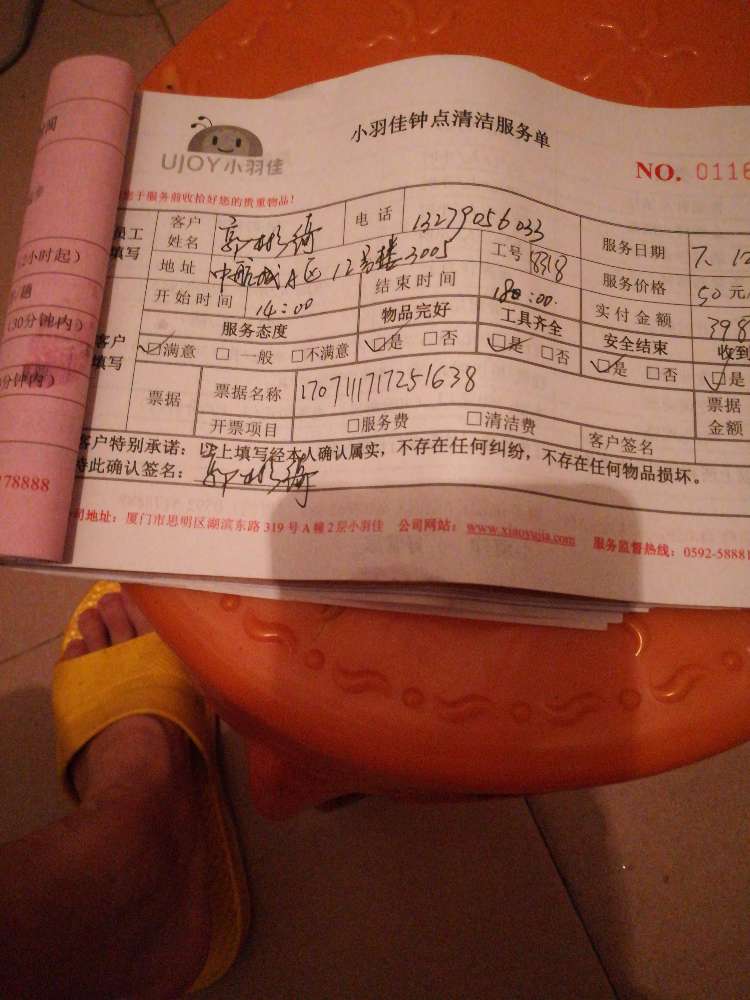 小羽佳钟点清洁服务单
UJOY小羽佳
NO. 0116
于服务前收拾好您的贵重物品!
员工填写 客户姓名 电话 13279056033 服务日期 7. 12
地址 中航城A区12号楼3005 工号 8318 服务价格 50元/
开始时间 14:00 结束时间 18:00. 实付金额 398
服务态度 物品完好 工具齐全 安全结束 收到
客户填写 满意 一般 不满意 是 否 是 否 是 否 是
票据 票据名称 1707111717251638 票据金额
开票项目 服务费 清洁费 客户签名
客户特别承诺: 以上填写经本人确认属实,不存在任何纠纷,不存在任何物品损坏。
特此确认签名:
司地址: 厦门市思明区湖滨东路319号A幢2层小羽佳 公司网站: www.xiaoyujia.com 服务监督热线: 0592-58881
2小时起)
题
(30分钟内)
分钟内)
78888